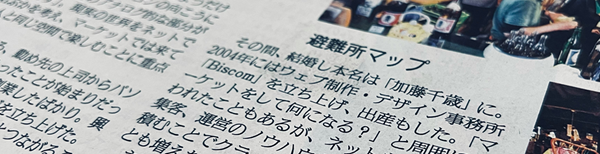 のアナログ的な部分が
現実の世界をネットで
かを考え、マーケットでは来て
と同じ空間で楽しむことに重点
、勤め先の上司からパソ
ったことが始まりだっ
したばかり。
を立ち上げた。興
つながる
避難所マップ
その間、結婚し本名は「加藤千歳」に。
2004年にはウェブ制作・デザイン事務所
「Biscom」を立ち上げ、出産もした。「マ
ーケットをして何になる?」と周囲に
われたこともあるが、ネット
集客、運営のノウハウ
積むことでクラ
とも増え